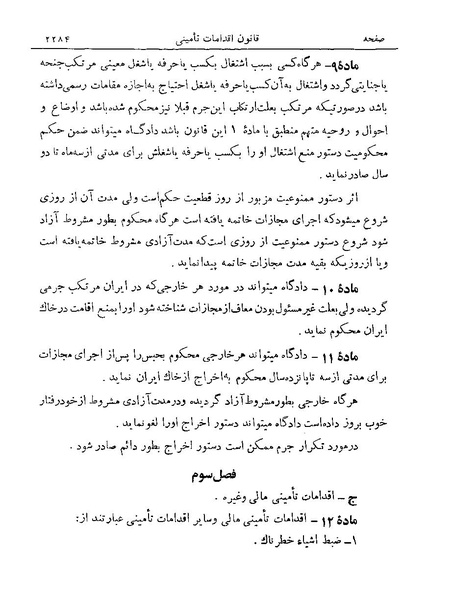 صفحه قانون اقدامات تأمینی ۲۲۸۴
مادهٔ ۹- هرگاه کسی بسبب اشتغال بکسب یا حرفه یا شغل معینی مرتکب جنحه
یا جنایتی گردد و اشتغال به آن کسب یا حرفه یا شغل احتیاج به اجازه مقامات رسمی داشته
باشد در صورتیکه مرتکب بعلت ارتکاب این جرم قبلا نیز محکوم شده باشد و اوضاع و
احوال و روحیه متهم منطبق با مادهٔ ۱ این قانون باشد دادگاه میتواند ضمن حکم
محکومیت دستور منع اشتغال او را بکسب یا حرفه یا شغلش برای مدتی از سه ماه تا دو
سال صادر نماید .
اثر دستور ممنوعیت مزبور از روز قطعیت حکم است ولی مدت آن از روزی
شروع میشود که اجرای مجازات خاتمه یافته است هرگاه محکوم بطور مشروط آزاد
شود شروع دستور ممنوعیت از روزی است که مدت آزادی مشروط خاتمه یافته است
ویا از روزیکه بقیه مدت مجازات خاتمه پیدا نماید .
مادهٔ ۱۰ - دادگاه میتواند در مورد هر خارجی که در ایران مرتکب جرمی
گردیده ولی بعلت غیر مسئول بودن معاف از مجازات شناخته شود او را بمنع اقامت در خاک
ایران محکوم نماید .
مادهٔ ۱۱ - دادگاه میتواند هر خارجی محکوم بحبس را پس از اجرای مجازات
برای مدتی از سه تا پانزده سال محکوم به اخراج از خاک ایران نماید .
هرگاه خارجی بطور مشروط آزاد گردیده و در مدت آزادی مشروط از خود رفتار
خوب بروز داده است دادگاه میتواند دستور اخراج او را لغو نماید .
در مورد تکرار جرم ممکن است دستور اخراج بطور دائم صادر شود .
فصل سوم
ج - اقدامات تأمینی مالی و غیره .
مادهٔ ۱۲ - اقدامات تأمینی مالی و سایر اقدامات تأمینی عبارتند از:
۱- ضبط اشیاء خطرناک .